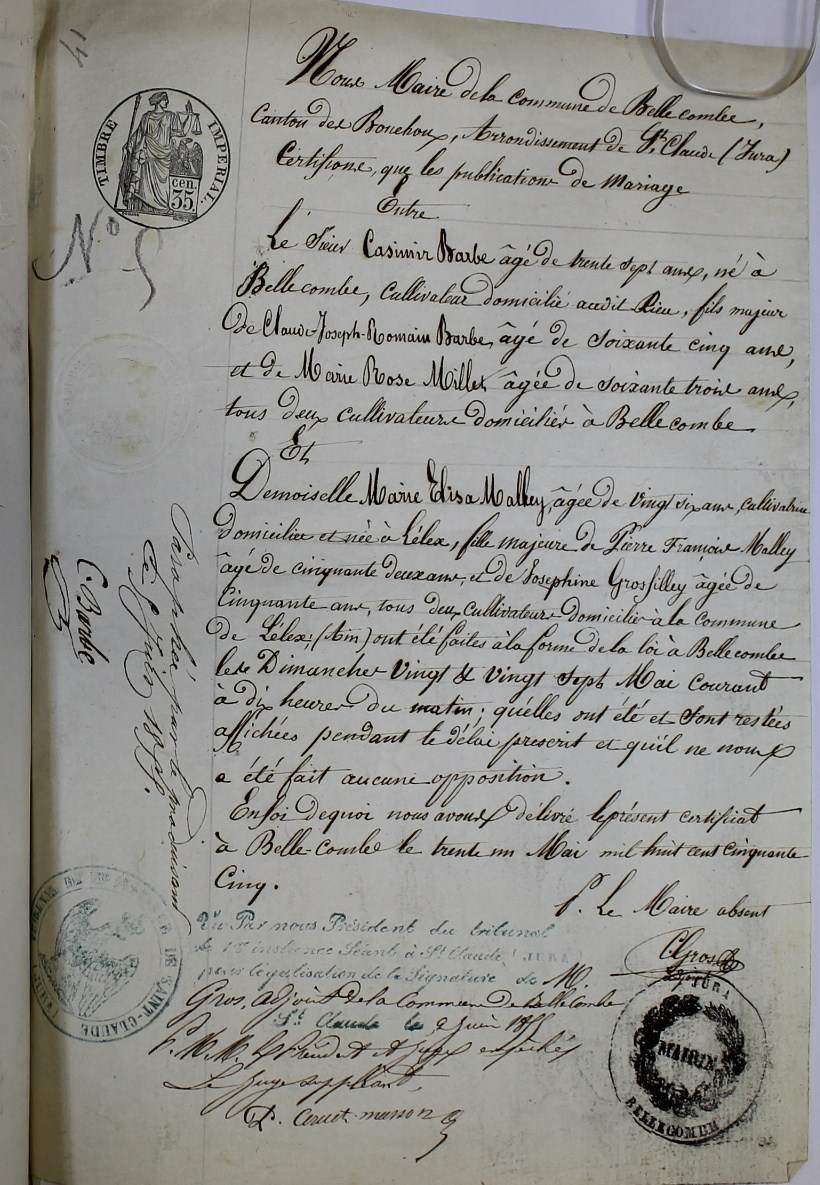 14
TIMBRE IMPERIAL.
cen.
35.
N° 5
Nous Maire de la Commune de Bellecombe,
Canton des Bouchoux, Arrondissement de St Claude (Jura)
Certifions, que les publications de Mariage
Entre
Le Sieur Casimir Barbe âgé de trente sept ans, né à
Bellecombe, Cultivateur domicilié audit lieu, fils majeur
de Claude-Joseph-Romain Barbe, âgé de soixante cinq ans,
et de Marie Rose Millet âgée de soixante trois ans,
tous deux cultivateurs domiciliés à Bellecombe
Et
Demoiselle Marie Elisa Malley, âgée de vingt six ans, cultivatrice
domiciliée et née à Lélex, fille majeure de Pierre François Malley
âgé de cinquante deux ans, et de Josephine Grosfilley âgée de
Cinquante ans, tous deux cultivateurs domiciliés à la commune
de Lélex, (Ain) ont été faites à la forme de la loi à Bellecombe
les Dimanches vingt & vingt sept Mai courant
à dix heures du matin; qu'elles ont été et sont restées
affichées pendant le délai prescrit et qu'il ne nous
a été fait aucune opposition.
En foi de quoi nous avons délivré le présent certificat
à Bellecombe le trente un Mai mil huit cent cinquante
Cinq.
P. Le Maire absent
CGros
Paraphé par le produisant
ce 5 Juin 1855.
C. Barbe
Vu Par nous Président du tribunal
de 1re instance Séant à St Claude (JURA)
pour légalisation de la Signature de M.
Gros, adjoint de la Commune de Bellecombe
St Claude le 2 Juin 1855
P. M. M. le Président et Juges empêchés
Le Juge suppléant,
DE SAINT-CLAUDE
JURA
MAIRIE
BELLECOMBE